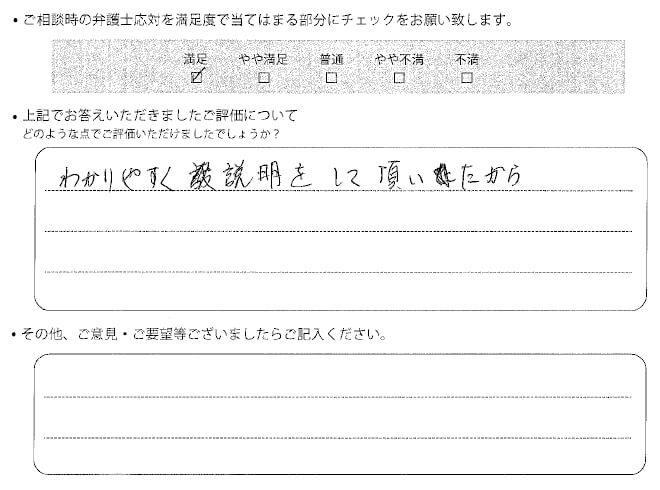 ・ご相談時の弁護士応対を満足度で当てはまる部分にチェックをお願い致します。
満足 やや満足 普通 やや不満 不満
☑ □ □ □ □
・上記でお答えいただきましたご評価について
どのような点でご評価いただけましたでしょうか？
わかりやすく説明をして頂いたから
・その他、ご意見・ご要望等ございましたらご記入ください。